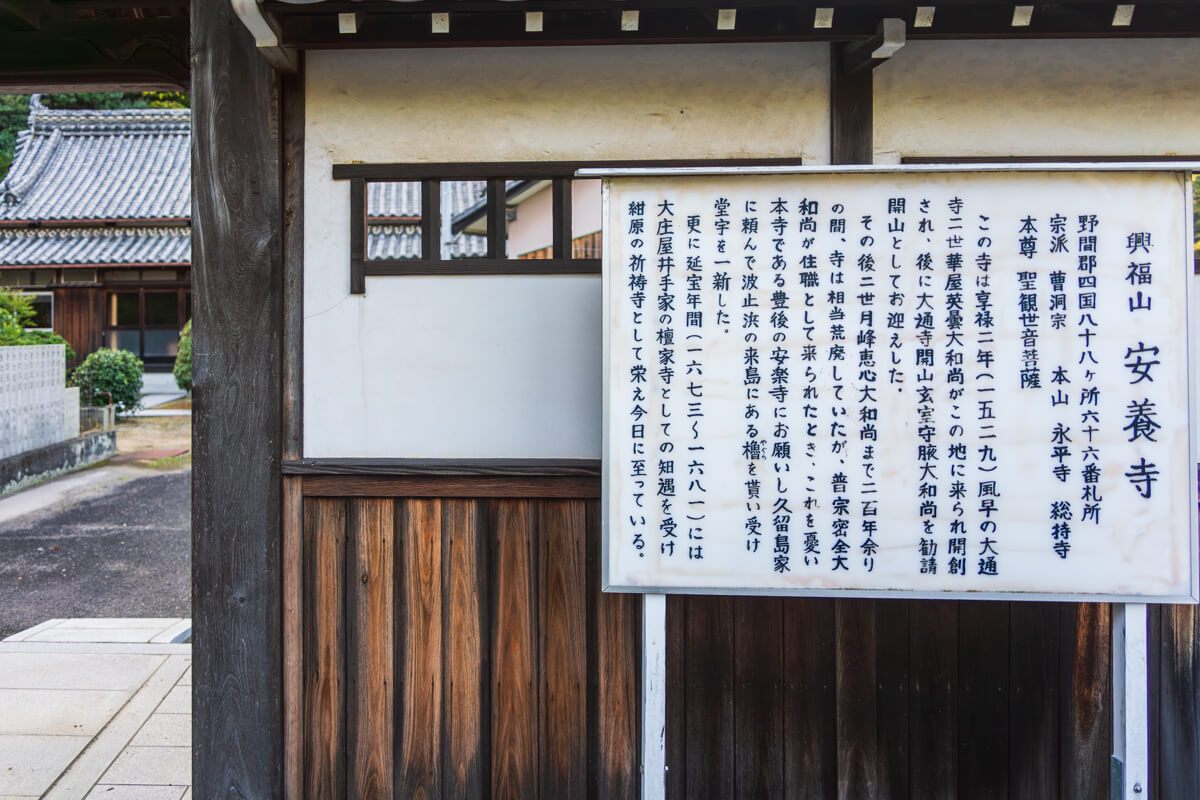 興福山 安養寺
野間郡四国八十八ヶ所六十六番札所
宗派 曹洞宗 本山 永平寺 総持寺
本尊 聖観世音菩薩
この寺は享禄二年（一五二九）風早の大通
寺二世華屋英曇大和尚がこの地に来られ開創
され、後に大通寺開山玄室守腋大和尚を勧請
開山としてお迎えした。
その後二世月峰恵心大和尚まで二百年余り
の間、寺は相当荒廃していたが、普宗密全大
和尚が住職として来られたとき、これを憂い
本寺である豊後の安楽寺にお願いし久留島家
に頼んで波止浜の来島にある櫓を貰い受け
やぐら
堂宇を一新した。
更に延宝年間（一六七三～一六八一）には
大庄屋井手家の檀家寺としての知遇を受け
紺原の祈祷寺として栄え今日に至っている。